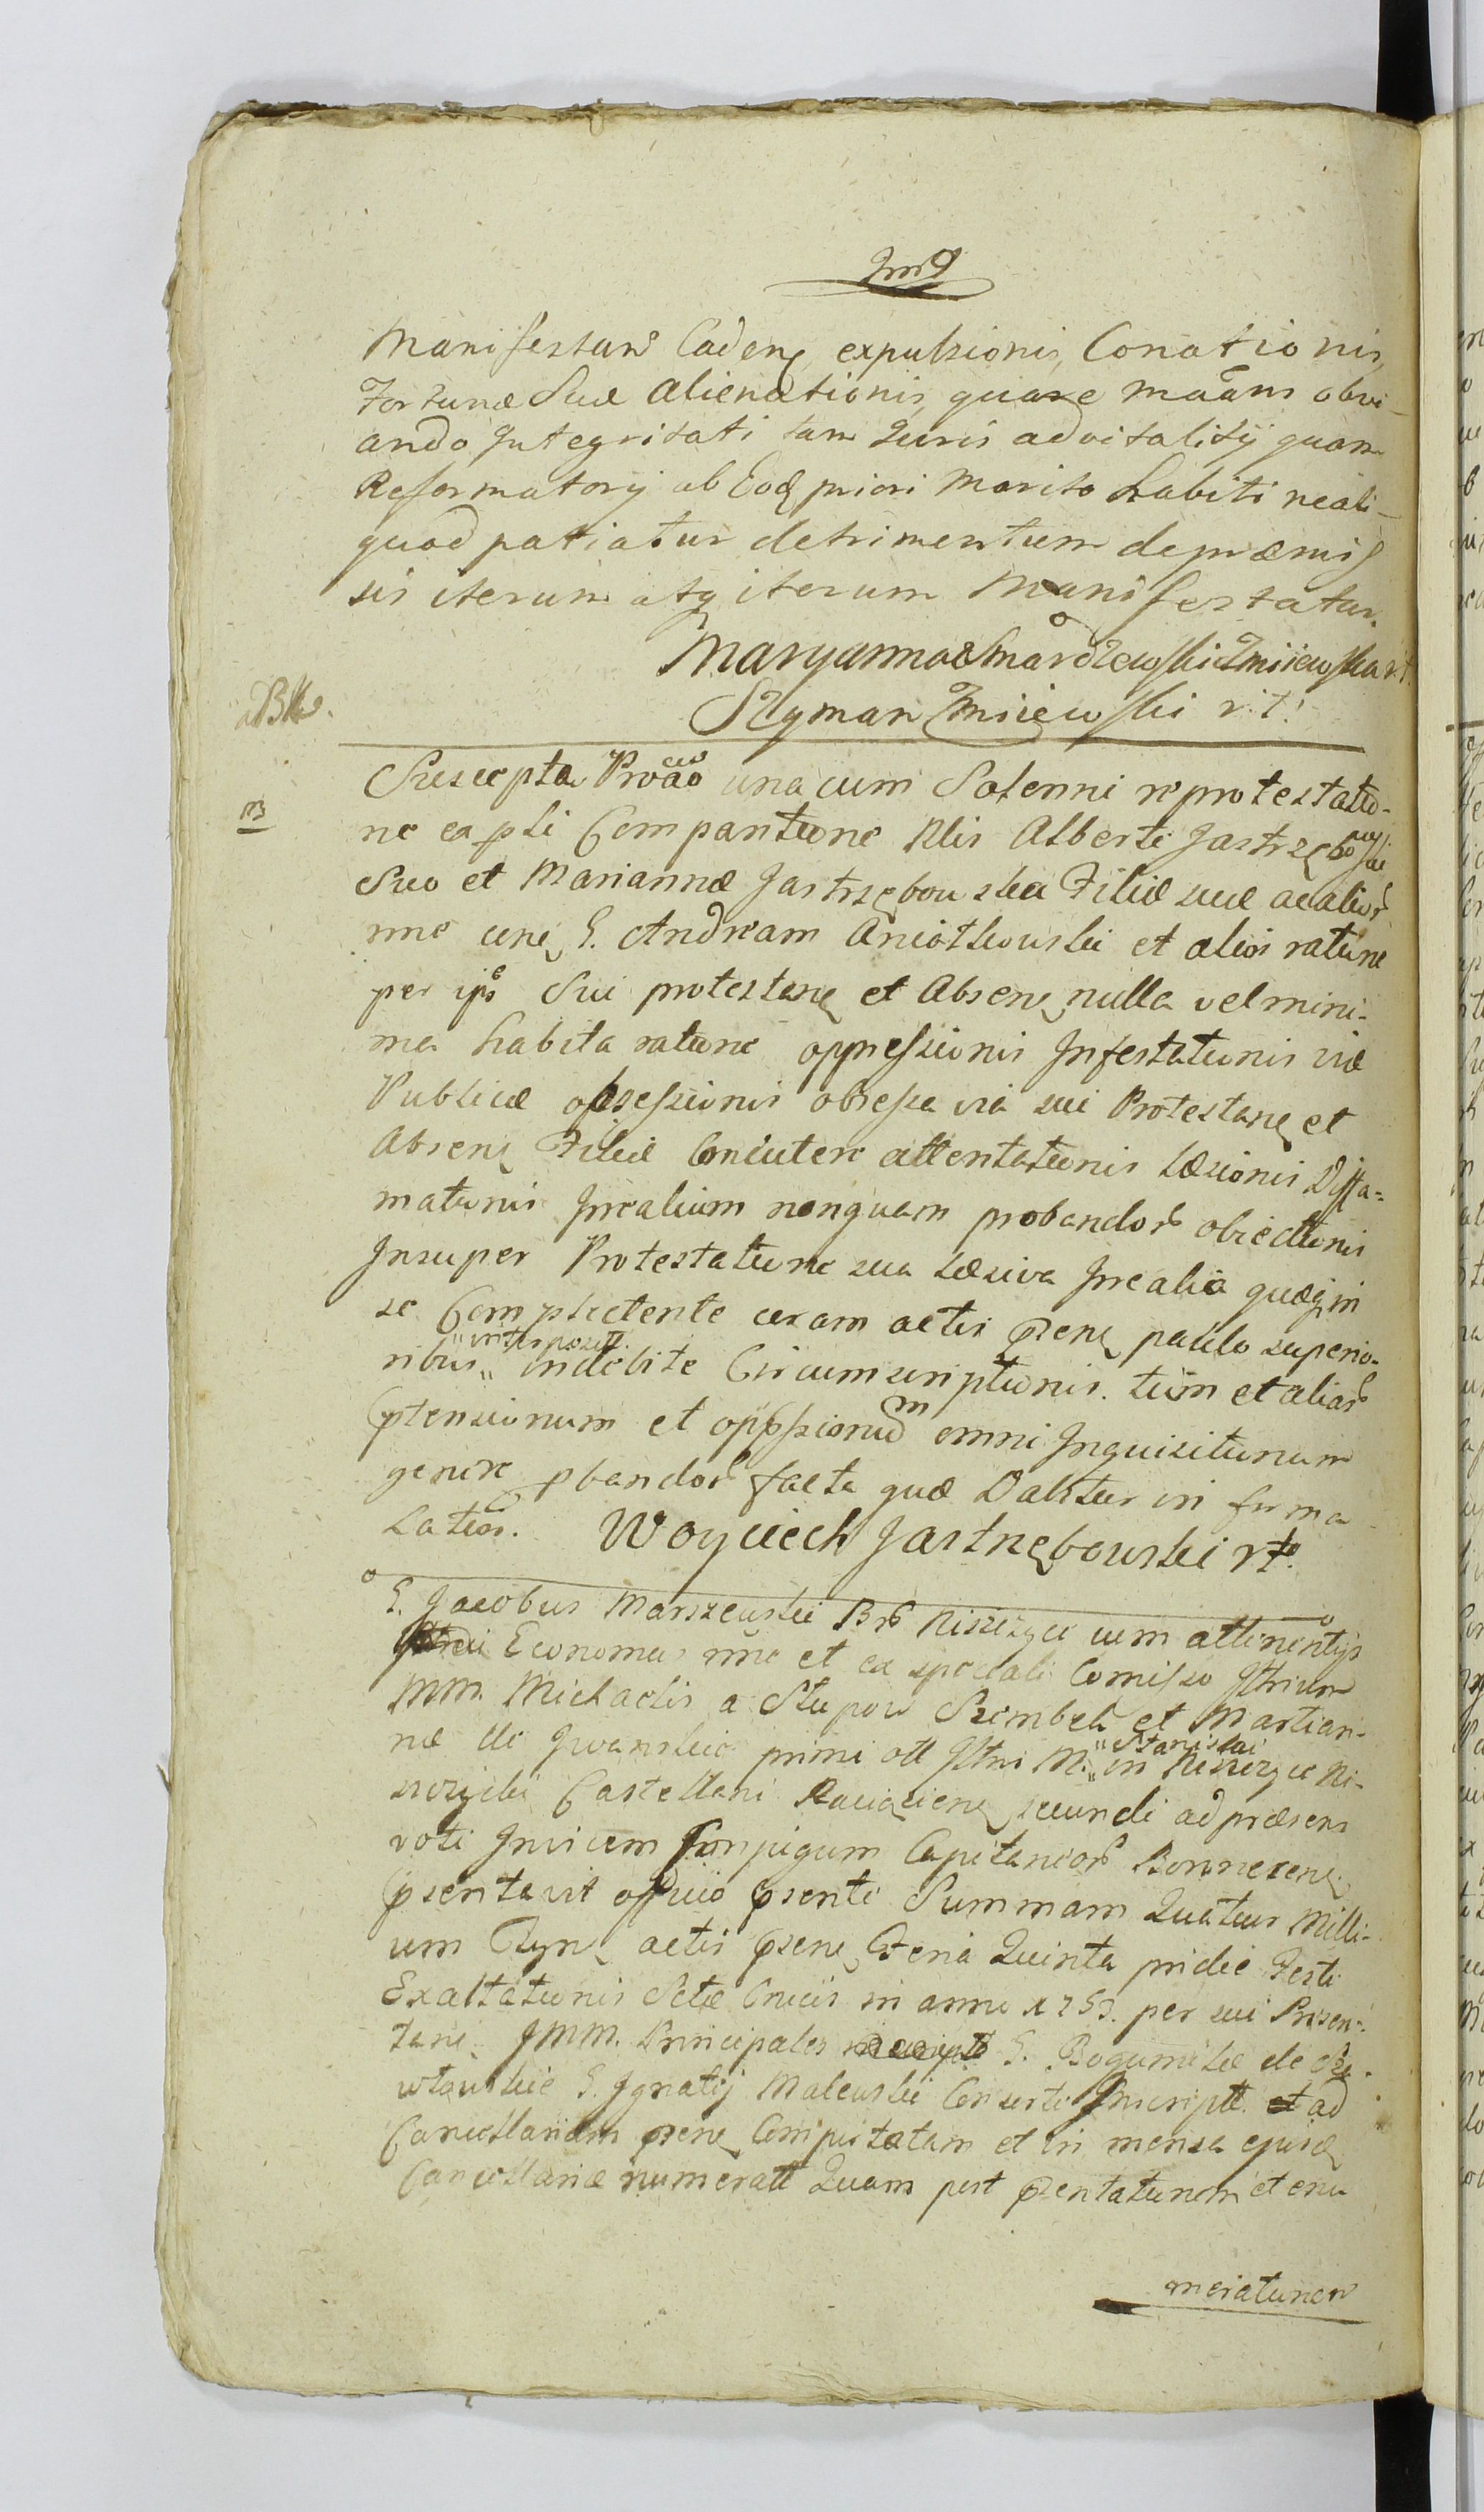 Manifestand Cadenę expulsionis, Conationis,
Fortunæ Suæ alienationis, quare maãm obvi-
ando Integritati tam Juris advitalitÿ quam
Reformatorÿ ab Eodę priori Marito habiti ne ali-
quod patiatur detrimentum de præmis
sis iterum atq iterum Manifestatur.
Maryanna Smardzewski Zmiiewska r.t.
Szyman Zmiiewski r.t.
Suscepta una cum Solenni reprotestatio-
ne ex psli Comparitione Nlis Alberti Jastrzębowski
Suo et Mariannæ Jastrzębowska Filiæ suæ ac alior
nne cong G. Andream Aniołkowski et alios ratione
per ipõ Sui protestanę et Absenę nulla vel mini-
ma habita ratione oppressionis Infestationis viæ
Publicæ obsessionis obsessa via sui Protestanę et
Absenę Filiæ Concutere attentationis Læsionis Diffa-
mationis Irrealium nonquam probandor obiectionis
Insuper Protestatione sua Læsiva Irrealia quæq in
se Complectente coram actis præsenę paulo superio-
ribus „interposit„ indebite Circumscriptionis. tum et aliar
ptensionum et oppssionum omni Inquisitionum
genere pbandor facta quæ Dabitur in forma
Latior. Woyciech Jastrzębowski rt.
G. Jacobus Marszewski Bnr Niszczyce cum attinentÿs
Economus nne et ex speciali Comisso Illrium
MM. Michaelis a Słupow Szembek et Martian-
næ de Iwanskie primi ott Illris M. „Stanislai„ in Niszczyce Ni-
szczycki Castellani Raciązienę secundi ad præsens
voti Invicem Conjugum Capitaneor Bonnerenę
psentavit officio psenti Summam Quatuor Milli-
um Flrnę actis psenę Feria Quinta pridie Festi
Exaltationis Sctæ Crucis in anno 1753. per sui Præsen-
tanę IMM. Principales G. Bogumilæ de
G. Ignatÿ Malewski Consorti Inscript. et ad
Cancellariam psenę Comportatam et in mensa ejusdę
Cancellariæ numeratt Quam post psentationem et enu
merationem